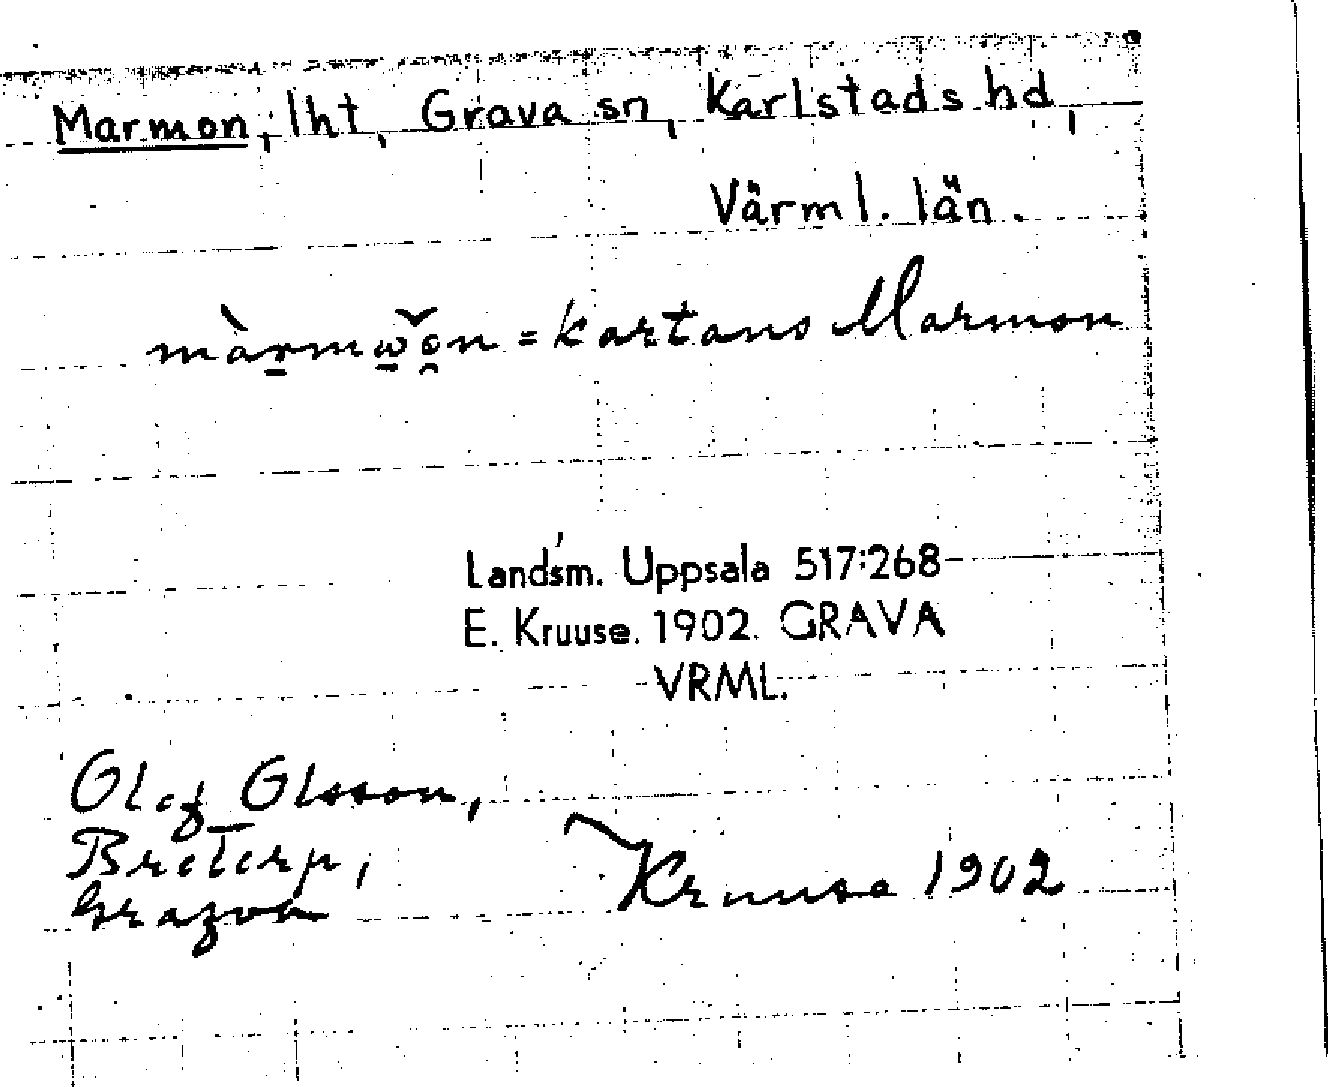 Marmon, lht, Grava sn, Karlstads hd,
Värml. län.
= kartans Marmon
Landsm. Uppsala 517:268
E. Kruuse. 1902. GRAVA
VRML.
Olof Olsson,
Kruuse 1902